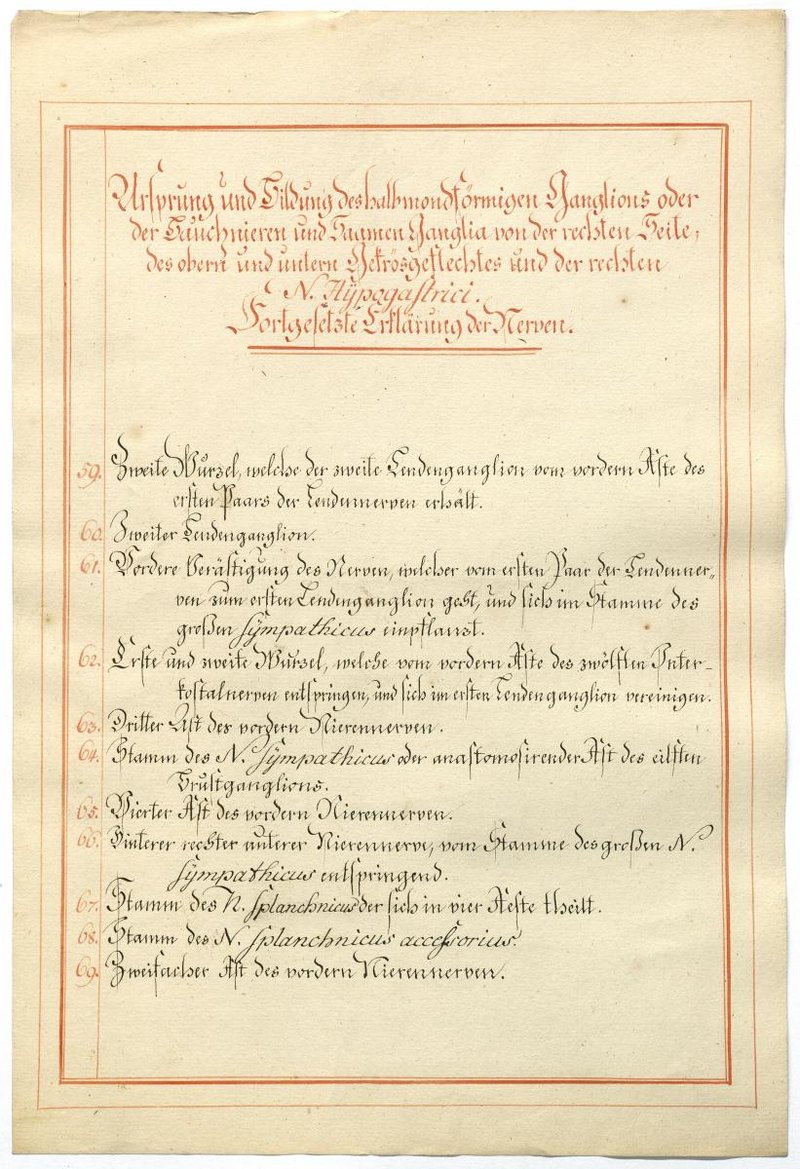 Ursprung und Bildung des halbmondförmigen Ganglions oder
der Bauchnieren und Saamen Ganglia von der rechten Seite,
des obern und untern Gekrösgeflechtes und der rechten
N. Hÿpogastrici.
Fortgesetzte Erklärung der Nerven.
59. Zweite Wurzel, welche der zweite Lendenganglion vom vordern Aste des
ersten Paars der Lendennerven erhält.
60. Zweiter Lendenganglion.
61. Vordere Verästigung des Nerven, welcher vom ersten Paar der Lendenner„
ven zum ersten Lendenganglion geht, und sich im Stamme des
großen Sÿmpathicus einpflanzt.
62. Erste und zweite Wurzel, welche vom vordern Aste des zwölften Inter-
kostalnerven entspringen, und sich im ersten Lendenganglion vereinigen.
63. Dritter Ast des vordern Nierennerven.
64. Stamm des N. Sÿmpathicus oder anastomosirender Ast des eilften
Brustganglions.
65. Vierter Ast des vordern Nierennerven.
66. Hinterer rechter unterer Nierennerve, vom Stamme des großen N.
Sÿmpathicus entspringend.
67. Stamm des N. Splanchnicus der sich in vier Aeste theilt.
68. Stamm des N. Splanchnicus accessorius.
69. Zweifacher Ast des vordern Nierennerven.